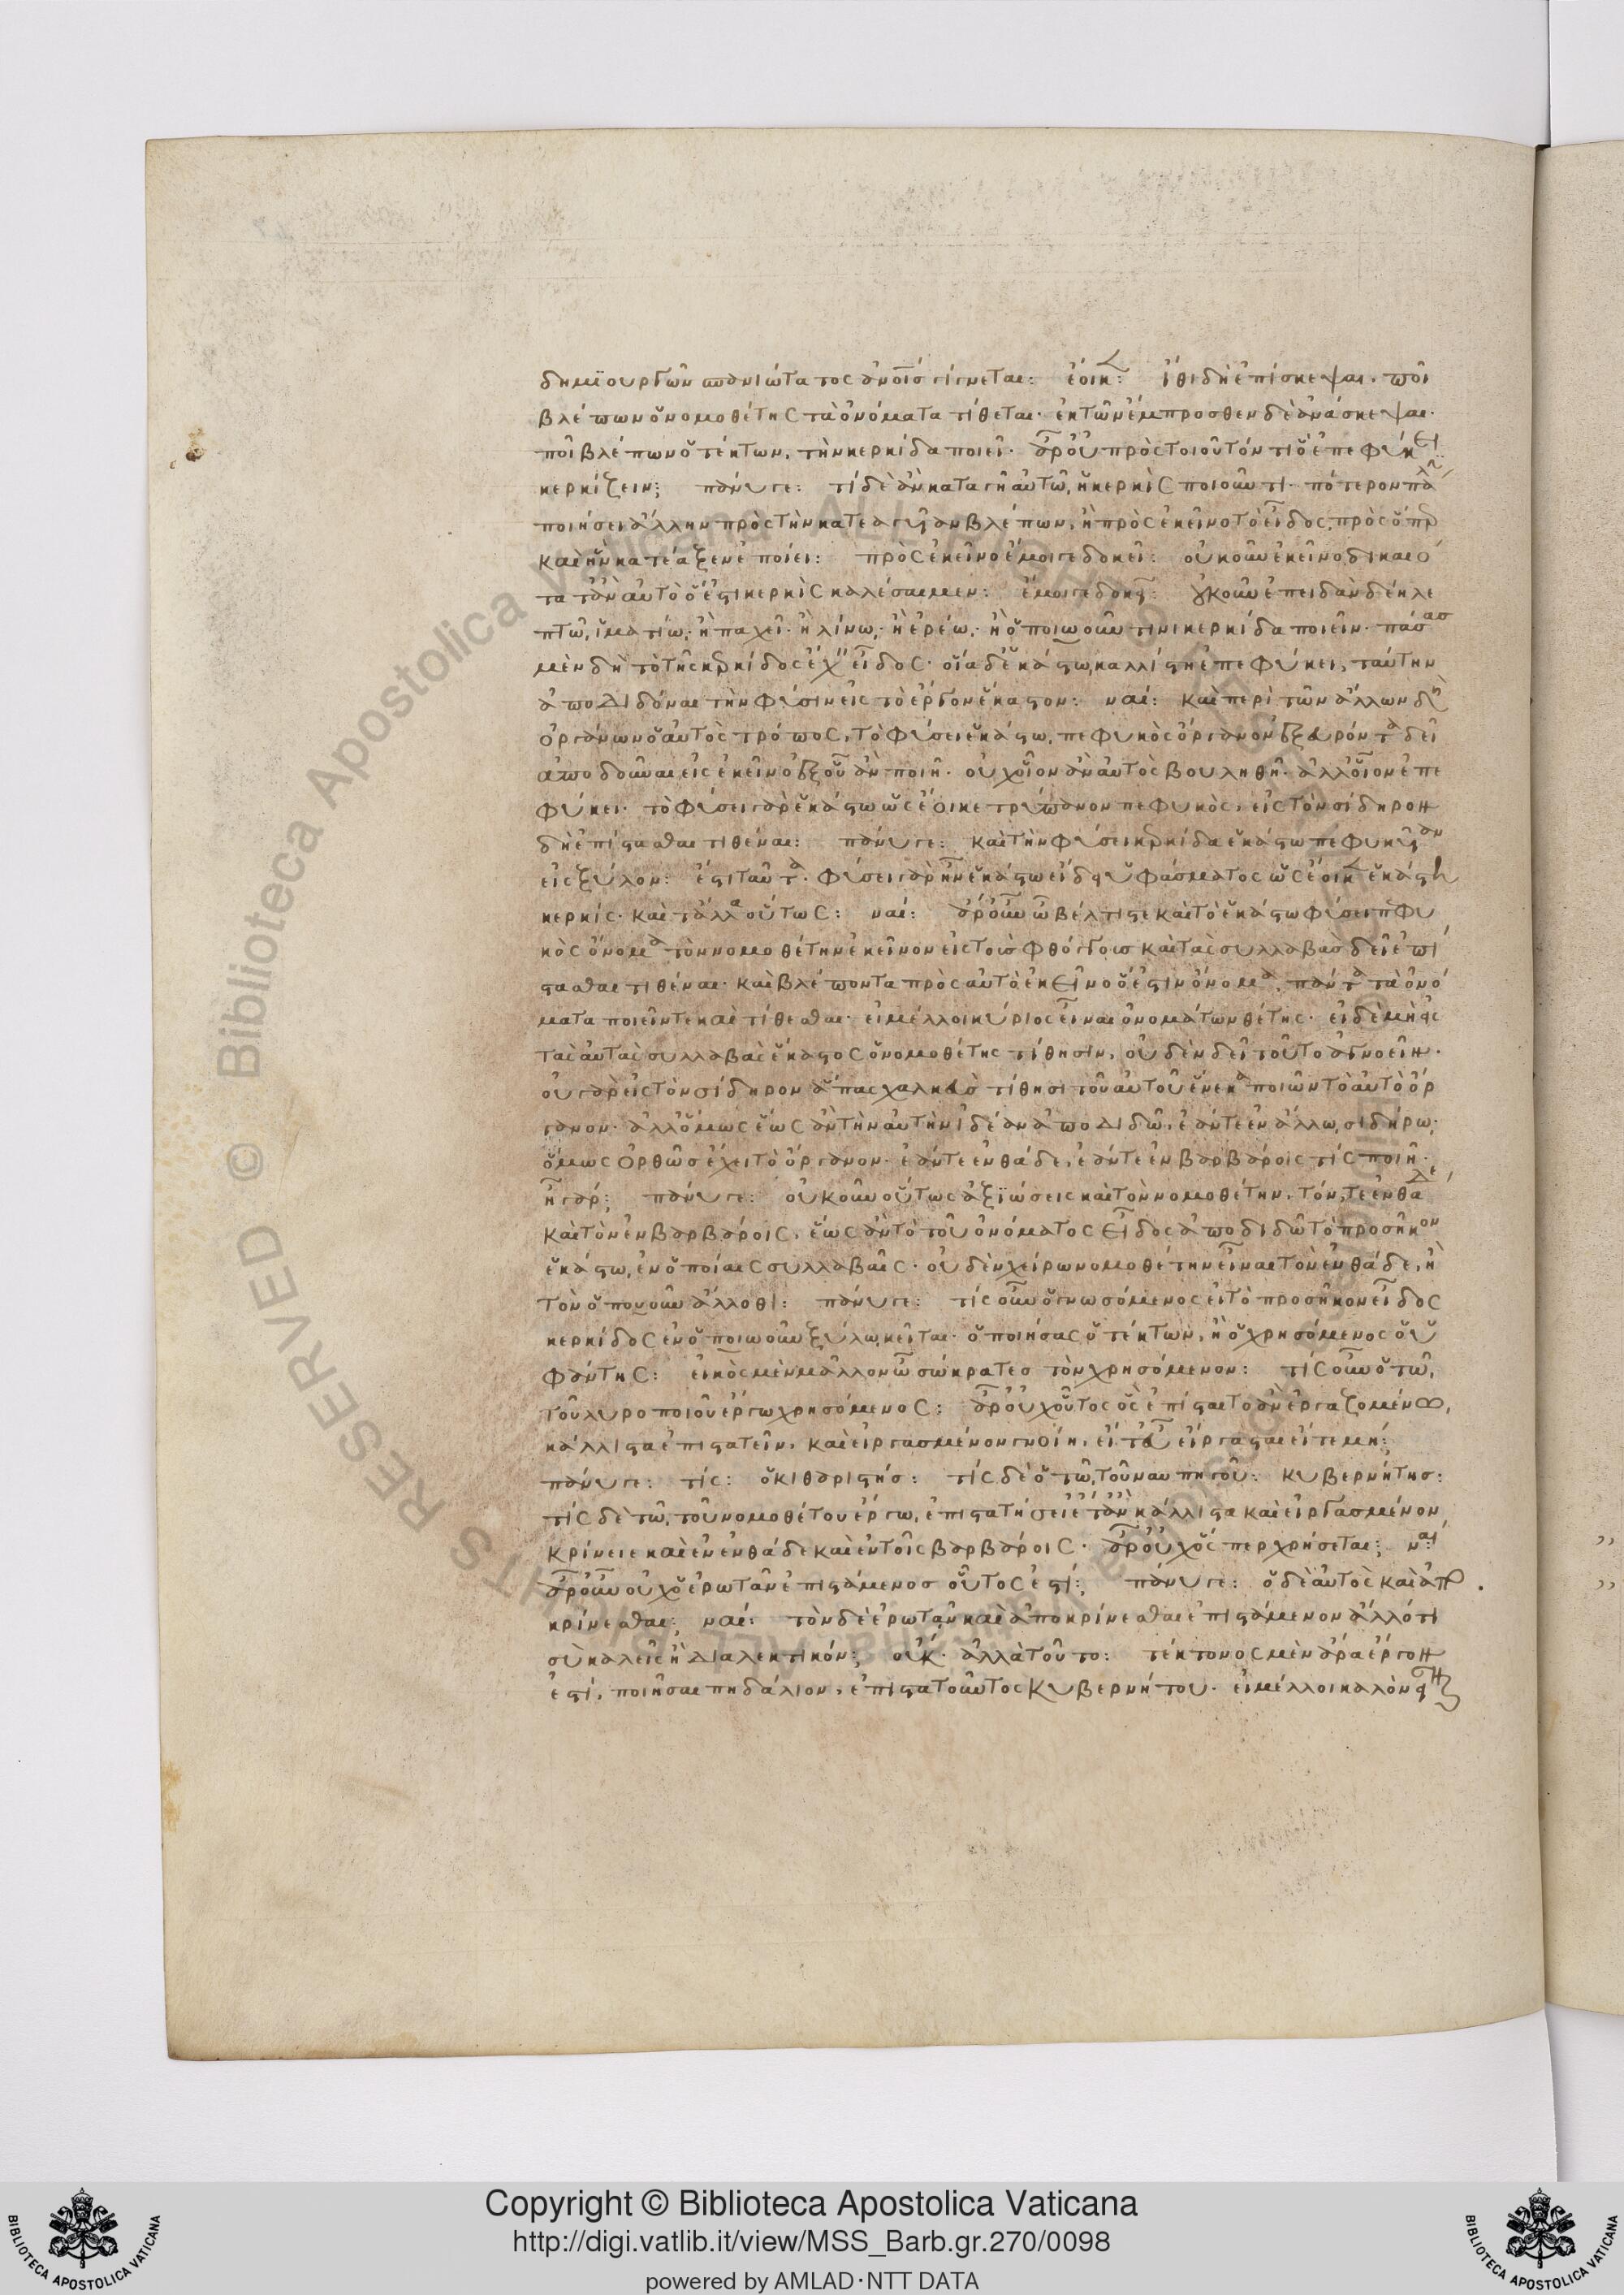 δημϊουργῶν σπανιώτατος ἀνοῖσ γίγνεται: ἔοικε: ἴθι δὴ ἐπίσκεψαι. ποῖ
βλέπων ὁ νομοθέτης τὰ ὀνόματα τίθεται· ἐκ τῶν ἔμπροσθεν δὲ ἀνάσκεψαι·
ποῖ βλέπων ὁ τέκτων, τὴν κερκίδα ποιεῖ· ἆρ' οὐ πρὸς τοιοῦτόν τι ὃ ἐπεφύκει
κερκίζειν; πάνυ γε: τί δὲ ἂν καταγῆ αὐτῶ, ἡ κερκὶς ποιοῦντι· πότερον πάλιν
ποιήσει ἄλλην πρὸς τὴν κατεαγυῖαν βλέπων, ἢ πρὸς ἐκεῖνο τὸ εἶδος, πρὸς ὅπερ
καὶ ἣν κατέαξεν ἐποίει: πρὸς ἐκεῖνο ἔμοιγε δοκεῖ: οὐκοῦν ἐκεῖνο δικαιό
τατ' ἂν αὐτὸ ὃ ἔστι κερκὶς καλέσαιμεν: ἔμοιγε δοκεῖ: οὐκοῦν ἐπειδὰν δέη λε
πτῶ, ἱματίω, ἢ παχεῖ· ἢ λίνω, ἢ ἐρέω, ἢ ὁποιωοῦν τινι κερκίδα ποιεῖν· πάσασ
μὲν δὴ τὸ τῆς κερκίδος ἔχειν εἶδος· οἵα δ' ἑκάστω, καλλίστη ἐπεφύκει, ταύτην
ἀποδιδόναι τὴν φύσιν εἰς τὸ ἔργον ἕκαστον: ναί: καὶ περὶ τῶν ἄλλων δὴ
ὀργάνων ὁ αὐτὸς τρόπος, τὸ φύσει ἑκάστω, πεφυκὸς ὄργανον ἐξευρόντα δεῖ
ἀποδοῦναι εἰς ἐκεῖνο ἐξ οὗ ἂν ποιῆ· οὐχ οἷον ἂν αὐτὸς βουληθῆ· ἀλλ' οἷον ἐπε
φύκει· τὸ φύσει γὰρ ἑκάστω ὡς ἔοικε τρύπανον πεφυκὸς, εἰς τὸν σίδηρον
δὴ ἐπίστασθαι τιθέναι: πάνυ γε: καὶ τὴν φύσει κερκίδα ἑκάστω πεφυκυῖαν
εἰς ξύλον: ἔστι ταῦτα· φύσει γὰρ ἦν ἑκάστω εἴδει ὑφάσματος ὡς ἔοικεν ἑκάστη
κερκίς· καὶ τἄλλα οὕτως: ναί: ἆρ' οὖν ὦ βέλτιστε καὶ τὸ ἑκάστω φύσει πεφυ
κὸς ὄνομα τὸν νομοθέτην ἐκεῖνον εἰς τοὺσ φθόγγους καὶ τὰς συλλαβὰσ δεῖ ἐπί
στασθαι τιθέναι· καὶ βλέποντα πρὸς αὐτὸ ἐκεῖνο ὃ ἔστιν ὄνομα, πάντα τὰ ὀνό
ματα ποιεῖν τε καὶ τίθεσθαι· εἰ μέλλοι κύριος εἶναι ὀνομάτων θέτης· εἰ δὲ μὴ εἰς
τὰς αὐτὰς συλλαβὰς ἕκαστος ὁ νομοθέτης τίθησιν, οὐδὲν δεῖ τοῦτο ἀγνοεῖν·
οὐ γὰρ εἰς τὸν σίδηρον ἅπας χαλκεὺσ τίθησι τοῦ αὐτοῦ ἕνεκα ποιῶν τὸ αὐτὸ ὄρ
γανον· ἀλλ' ὅμως ἕως ἂν τὴν αὐτὴν ἰδέαν ἀποδιδῶ, ἐάντε ἐν ἄλλω, σιδήρω,
ὅμως ὀρθῶσ ἔχει τὸ ὄργανον· ἐάντε ἐνθάδε, ἐάντε ἐν βαρβάροις τίς ποιῆ·
ἦ γάρ; πάνυ γε: οὐκοῦν οὕτως ἀξϊώσεις καὶ τὸν νομοθέτην, τόν, τε ἐνθάδε
καὶ τὸν ἐν βαρβάροις, ἕως ἂν τὸ τοῦ ὀνόματος εἶδος ἀποδιδῶ τὸ προσῆκον
ἑκάστω, ἐν ὁποίαις συλλαβαῖς· οὐδὲν χείρω νομοθέτην εἶναι τὸν ἐνθάδε, ἢ
τὸν ὁπουοῦν ἄλλοθι: πάνυ γε: τίς οὖν ὁ γνωσόμενος εἰ τὸ προσῆκον εἶδος
κερκίδος ἐν ὁποιωοῦν ξύλω, κεῖται· ὁ ποιήσας ὁ τέκτων, ἢ ὁ χρησόμενος ὁ ὑ
φάντης: εἰκὸς μὲν μᾶλλον ὦ σώκρατεσ τὸν χρησόμενον: τίς οὖν ὁ τῶ,
τοῦ λυροποιοῦ ἔργω χρησόμενος: ἆρ' οὐχ οὗτος ὃς ἐπίσταιτο ἂν ἐργαζομένου,
κάλλιστα ἐπιστατεῖν, καὶ εἰργασμένον γνοίη, εἴτ' εὖ εἴργασται εἴτε μή:
πάνυ γε: τίς: ὁ κιθαριστήσ: τίς δὲ ὁ τῶ, τοῦ ναυπηγοῦ: κυβερνήτησ:
τίς δὲ τῶ, τοῦ νομοθέτου ἔργω, ἐπιστατήσειέ τ' ἂν κάλλιστα καὶ εἰργασμένον
κρίνειε καὶ ἐν ἐνθάδε καὶ ἐν τοῖς βαρβάροις· ἆρ' οὐχ ὅς περ χρήσεται; ναί
ἆρ' οὖν οὐχ ὁ ἐρωτᾶν ἐπιστάμενοσ οὗτος ἐστί; πάνυ γε: ὁ δὲ αὐτὸς καὶ ἀπο
κρίνεσθαι; ναί: τὸν δὲ ἐρωτᾶν καὶ ἀποκρίνεσθαι ἐπιστάμενον ἄλλό τι
σὺ καλεῖς ἢ διαλεκτικόν; οὔκ· ἀλλὰ τοῦτο: τέκτονος μὲν ἄρα ἔργον
ἐστί, ποιῆσαι πηδάλιον, ἐπιστατοῦντος κυβερνήτου· εἰ μέλλοι καλὸν
Copyright © Biblioteca Apostolica Vaticana
http://digi.vatlib.it/view/MSS_Barb.gr.270/0098
powered by AMLAD·NTT DATA